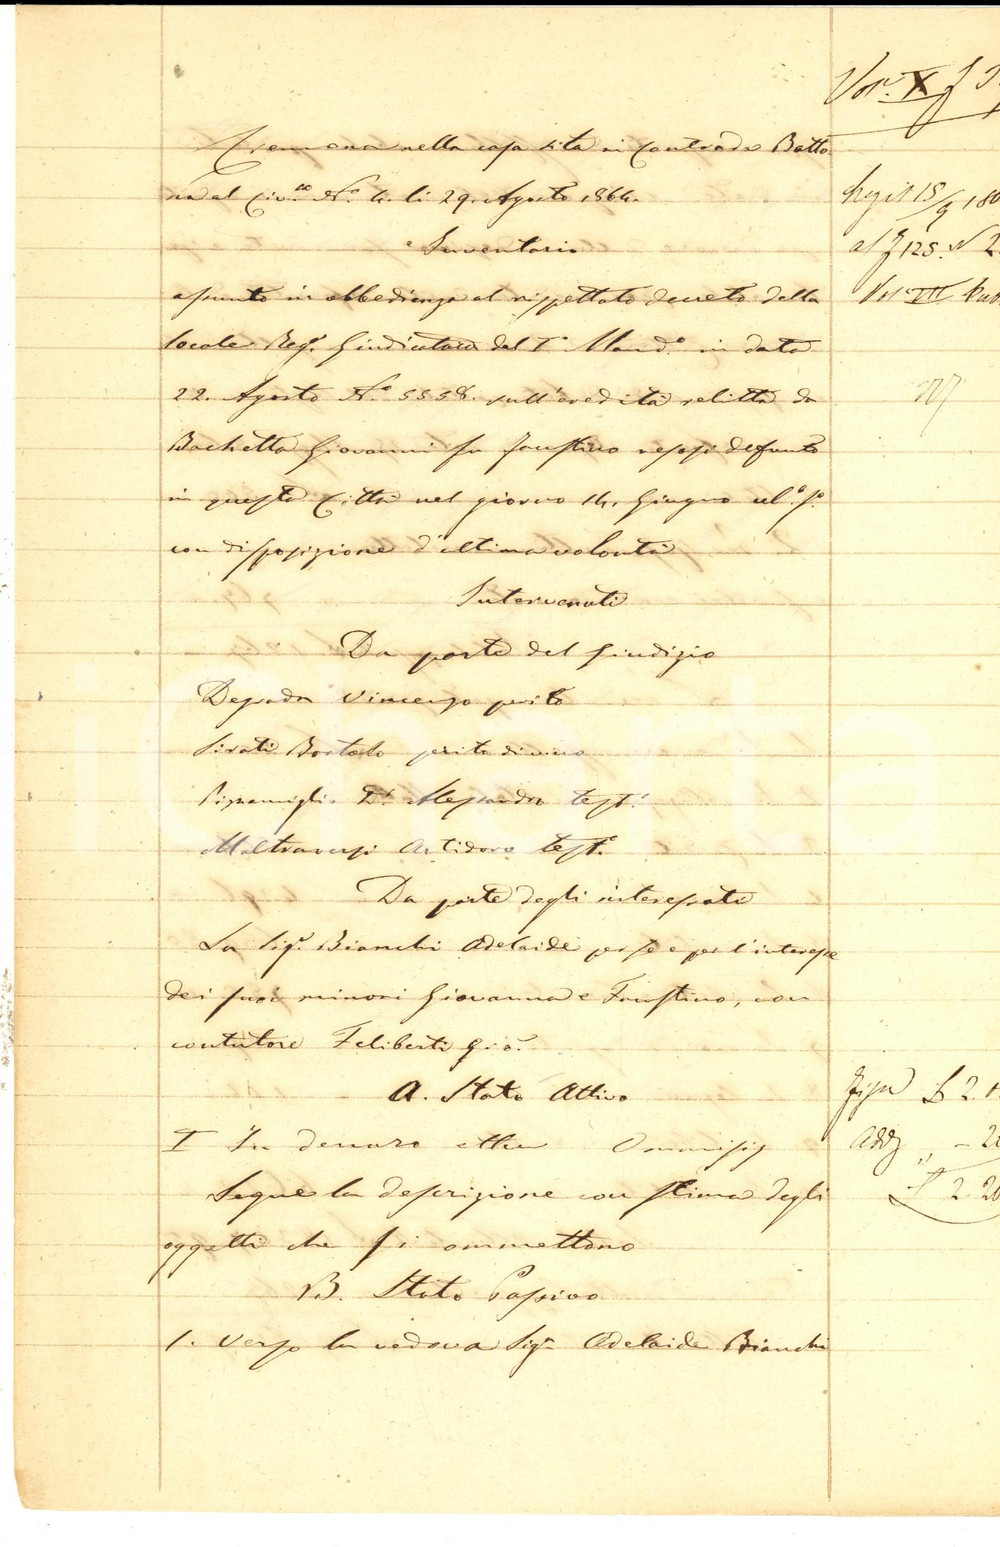 Cremona nella casa sita in Contrada Betto
na al Civ.co N.o 4. li 29. Agosto 1864.
Inventario
assunto in obbedienza al rispettato decreto della
locale Reg.a Giudicatura del I.o Mand.o in data
22. Agosto N.o 5558. sull'eredità relitta da
Bachetta Giovanni fu Faustino resosi defunto
in questa Città nel giorno 14. Giugno ul.o p.o
con disposizione d'ultima volontà
Intervenuti
Da parte del Giudizio
Vincenzo perito
Bortolo perito
D.r Alessandro test.e
Maltraversi Artidoro test.e
Da parte degli interessati
La Sig.a Bianchi Adelaide per se e per l'interesse
dei suoi minori Giovanna e Faustino, con
contutore Feliberti Gio.
A. Stato Attivo
I In denaro ettu Ommissis
Segue la descrizione con stima degli
oggetti che si ommettono
B. Stato Passivo
1. Verso la vedova Sig.a Adelaide Bianchi
Vol. X f
15/9 180
al f 125. N 2
Vol. VII
Fissa £ 2.
Add - 2
£ 2. 20